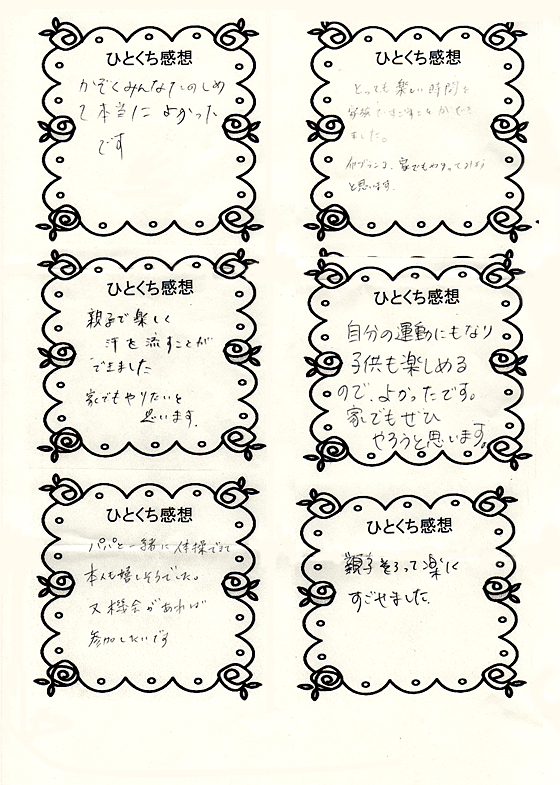 ひとくち感想
かぞくみんなたのしめ
て本当によかった
です
ひとくち感想
とっても楽しい時間を
家族ですごすことができ
ました。
家でもやってみよう
と思います。
ひとくち感想
親子で楽しく
汗を流すことが
できました
家でもやりたいと
思います。
ひとくち感想
自分の運動にもなり
子供も楽しめる
ので、よかったです。
家でもぜひ
やろうと思います。
ひとくち感想
パパと一緒に体操できて
本人も嬉しそうでした。
又機会があれば
参加したいです
ひとくち感想
親子そろって楽しく
すごせました。